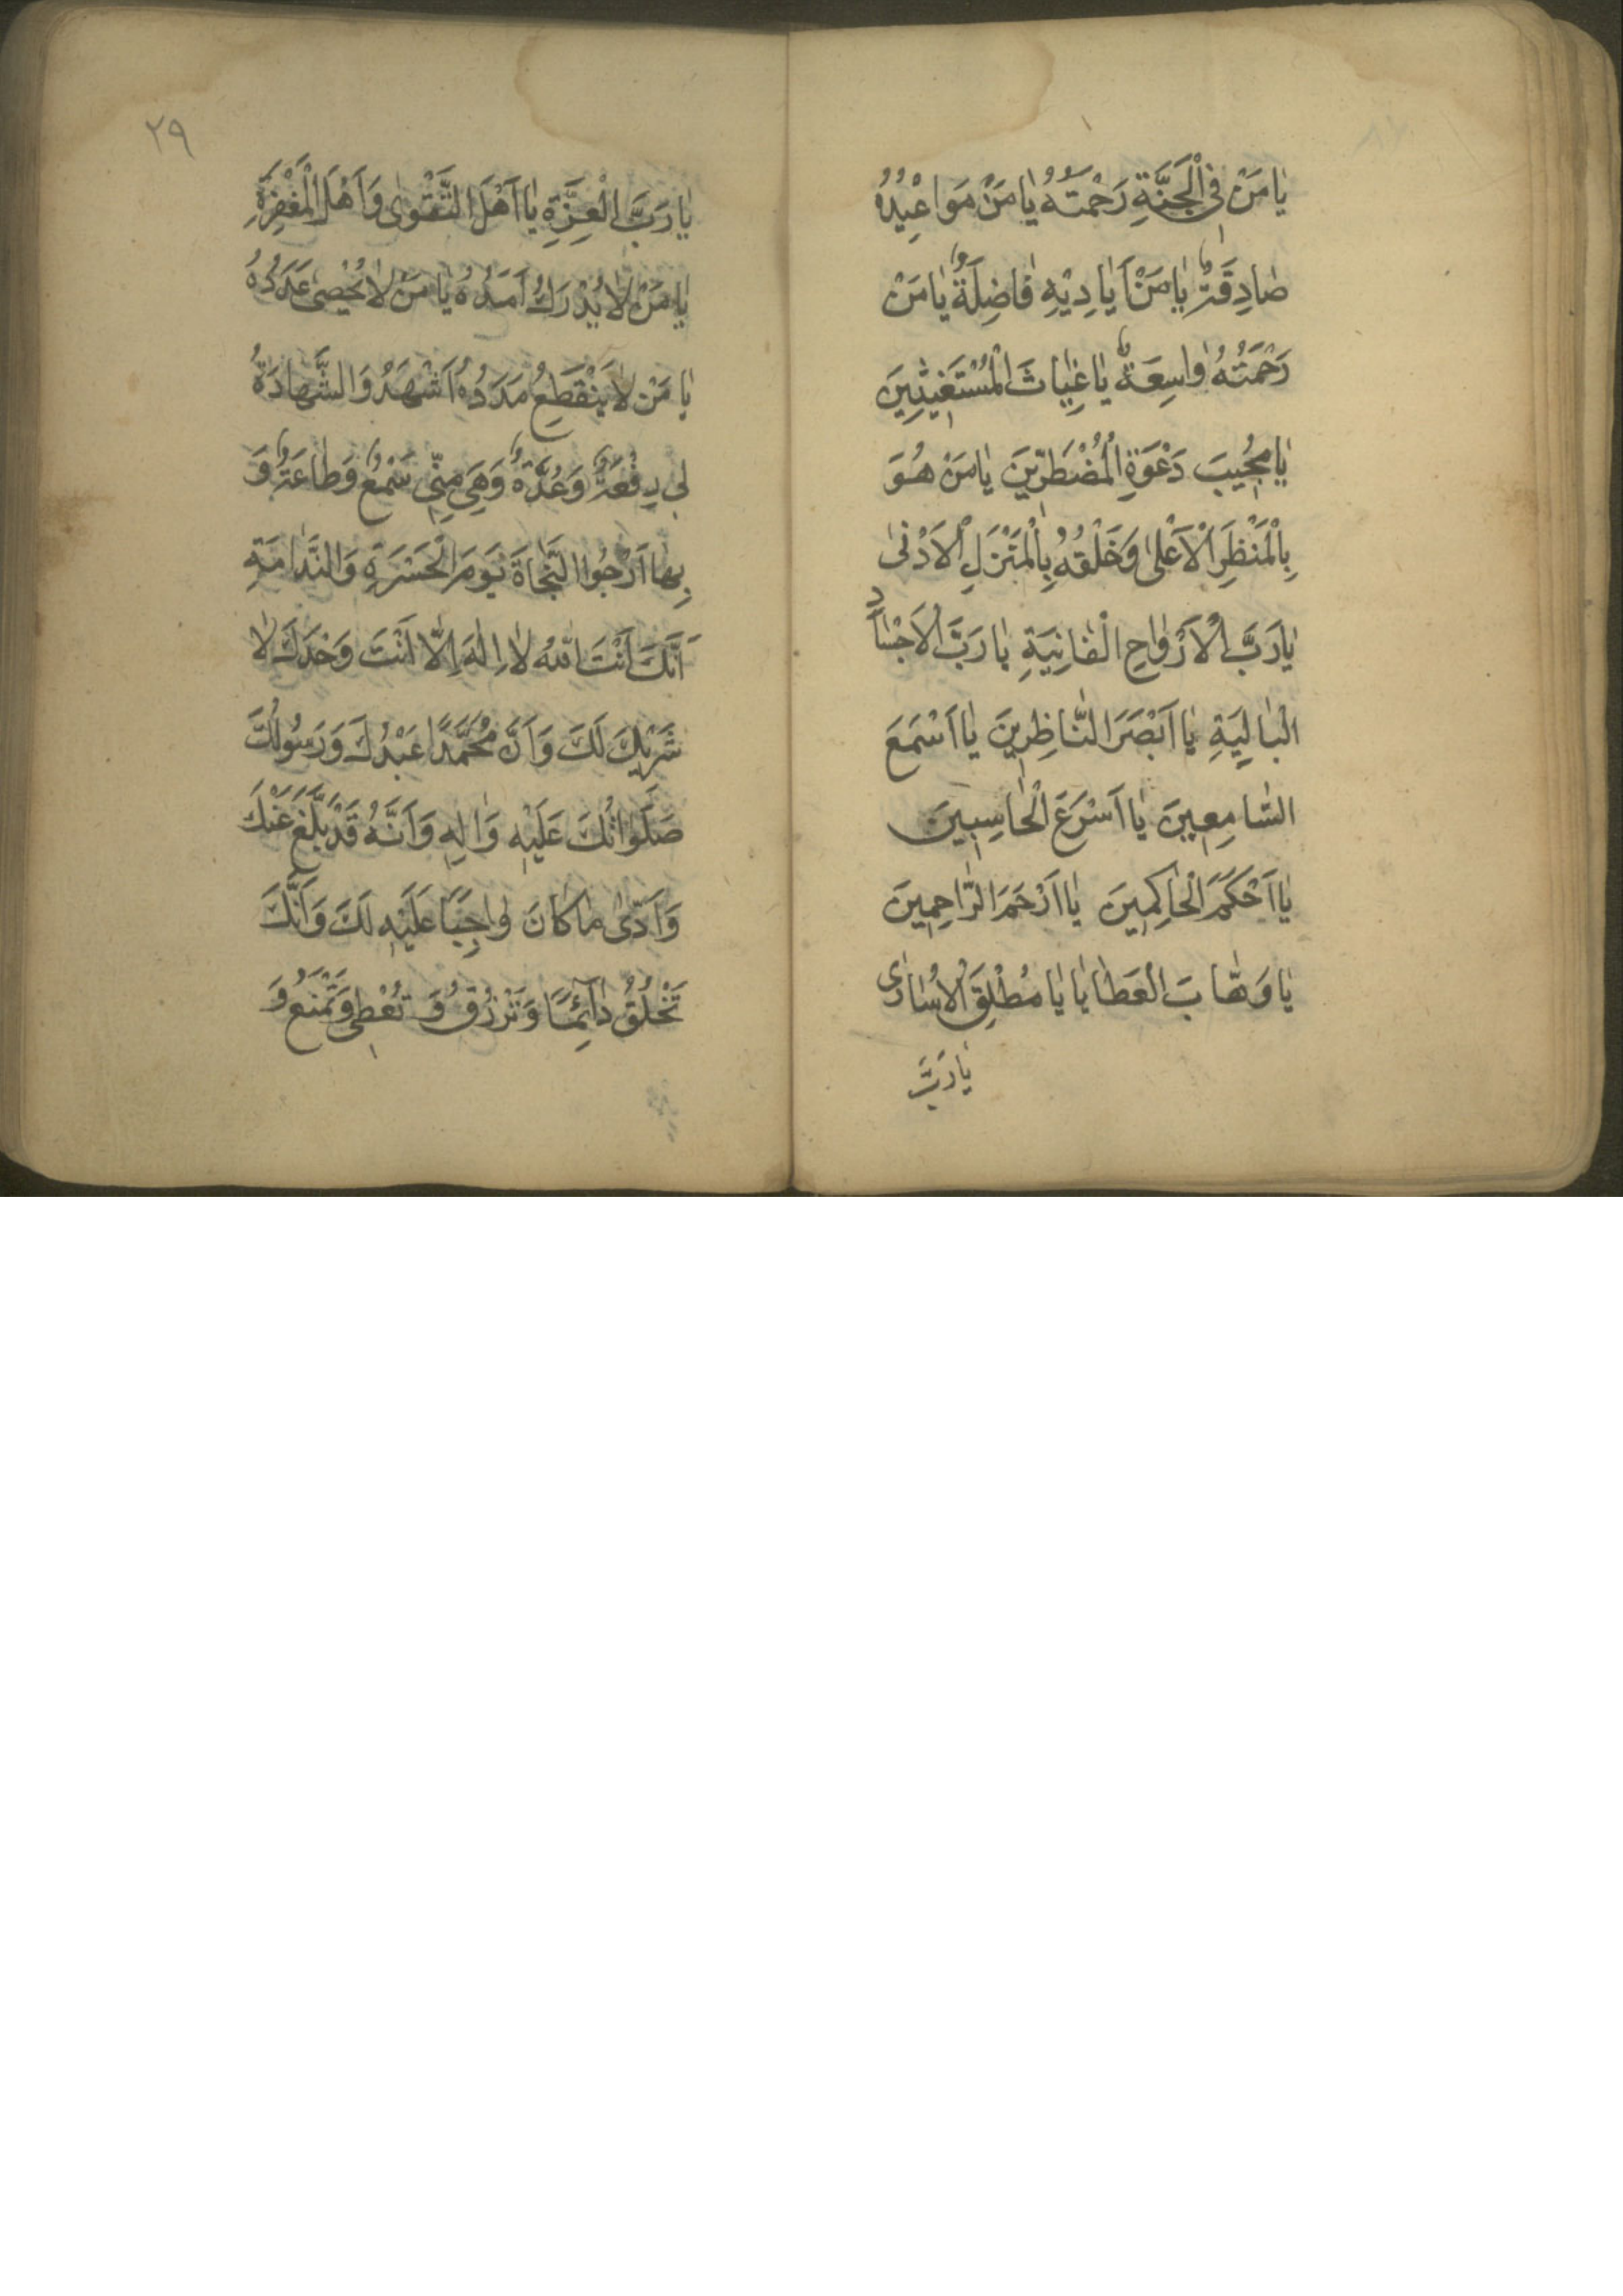 يَا مَنْ فِي الْجَنَّةِ رَحْمَتُهُ يَا مَنْ مَوَاعِيْدُهُ
صَادِقَةٌ يَا مَنْ اَيَادِيْهِ فَاضِلَةٌ يَا مَنْ
رَحْمَتُهُ وَاسِعَةٌ يَا غِيَاثَ الْمُسْتَغِيثِينَ
يَا مُجِيبَ دَعْوَةِ الْمُضْطَرِّينَ يَا مَنْ هُوَ
بِالْمَنْظَرِ الْاَعْلٰى وَخَلْقُهُ بِالْمَنْزَلِ الْاَدْنٰى
يَا رَبَّ الْاَرْوَاحِ الْفَانِيَةِ يَا رَبَّ الْاَجْسَادِ
الْبَالِيَةِ يَا اَبْصَرَ النَّاظِرِينَ يَا اَسْمَعَ
السَّامِعِينَ يَا اَسْرَعَ الْحَاسِبِينَ
يَا اَحْكَمَ الْحَاكِمِينَ يَا اَرْحَمَ الرَّاحِمِينَ
يَا وَهَّابَ الْعَطَايَا يَا مُطْلِقَ الْاُسَارٰى
يَا رَبَّ
٢٩
يَا رَبَّ الْعِزَّةِ يَا اَهْلَ التَّقْوٰى وَاَهْلَ الْمَغْفِرَةِ
يَا مَنْ لَا يُدْرَكُ اَمَدُهُ يَا مَنْ لَا يُحْصٰى عَدَدُهُ
يَا مَنْ لَا يَنْقَطِعُ مَدَدُهُ اَشْهَدُ وَالشَّهَادَةُ
لِي رِفْعَةٌ وَعُدَّةٌ وَهِيَ مِنِّي سَمْعٌ وَطَاعَةٌ وَ
بِهَا اَرْجُوا النَّجَاةَ يَوْمَ الْحَسْرَةِ وَالنَّدَامَةِ
اَنَّكَ اَنْتَ اللّٰهُ لَا اِلٰهَ اِلَّا اَنْتَ وَحْدَكَ لَا
شَرِيْكَ لَكَ وَاَنَّ مُحَمَّدًا عَبْدُكَ وَرَسُولُكَ
صَلَوَاتُكَ عَلَيْهِ وَاٰلِهِ وَاَنَّهُ قَدْ بَلَّغَ عَنْكَ
وَاَدّٰى مَا كَانَ وَاجِبًا عَلَيْهِ لَكَ وَاَنَّكَ
تَخْلُقُ دَآئِمًا وَتَرْزُقُ وَ تُعْطِي وَتَمْنَعُ وَ